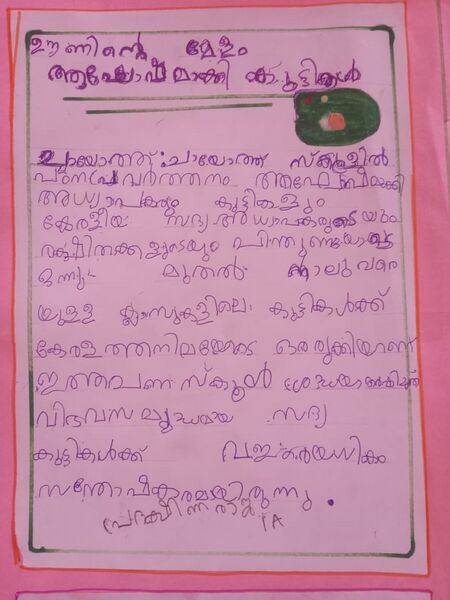 ഊണിൻ്റെ മേളം
ആഘോഷമാക്കി കുട്ടികൾ
ചായോത്ത്: ചായോത്ത് സ്കൂളിൽ
പഠനപ്രവർത്തനം ആഘോഷമാക്കി
അധ്യാപകരും കുട്ടികളും
കേരളീയ സദ്യ അധ്യാപകരുടെയും
രക്ഷിതാക്കളുടെയും പിന്തുണയോടെ
ഒന്നു മുതൽ നാലു വരെ
യുള്ള ക്ലാസുകളിലെ കുട്ടികൾക്ക്
കേരളത്തനിമയോടെ ഒരുക്കിയാണ്
ഇത്തവണ സ്കൂൾ ശ്രദ്ധയാകർഷിച്ചത്
വിഭവസമൃദ്ധമായ സദ്യ
കുട്ടികൾക്ക് വളരെയധികം
സന്തോഷകരമായിരുന്നു.
1A